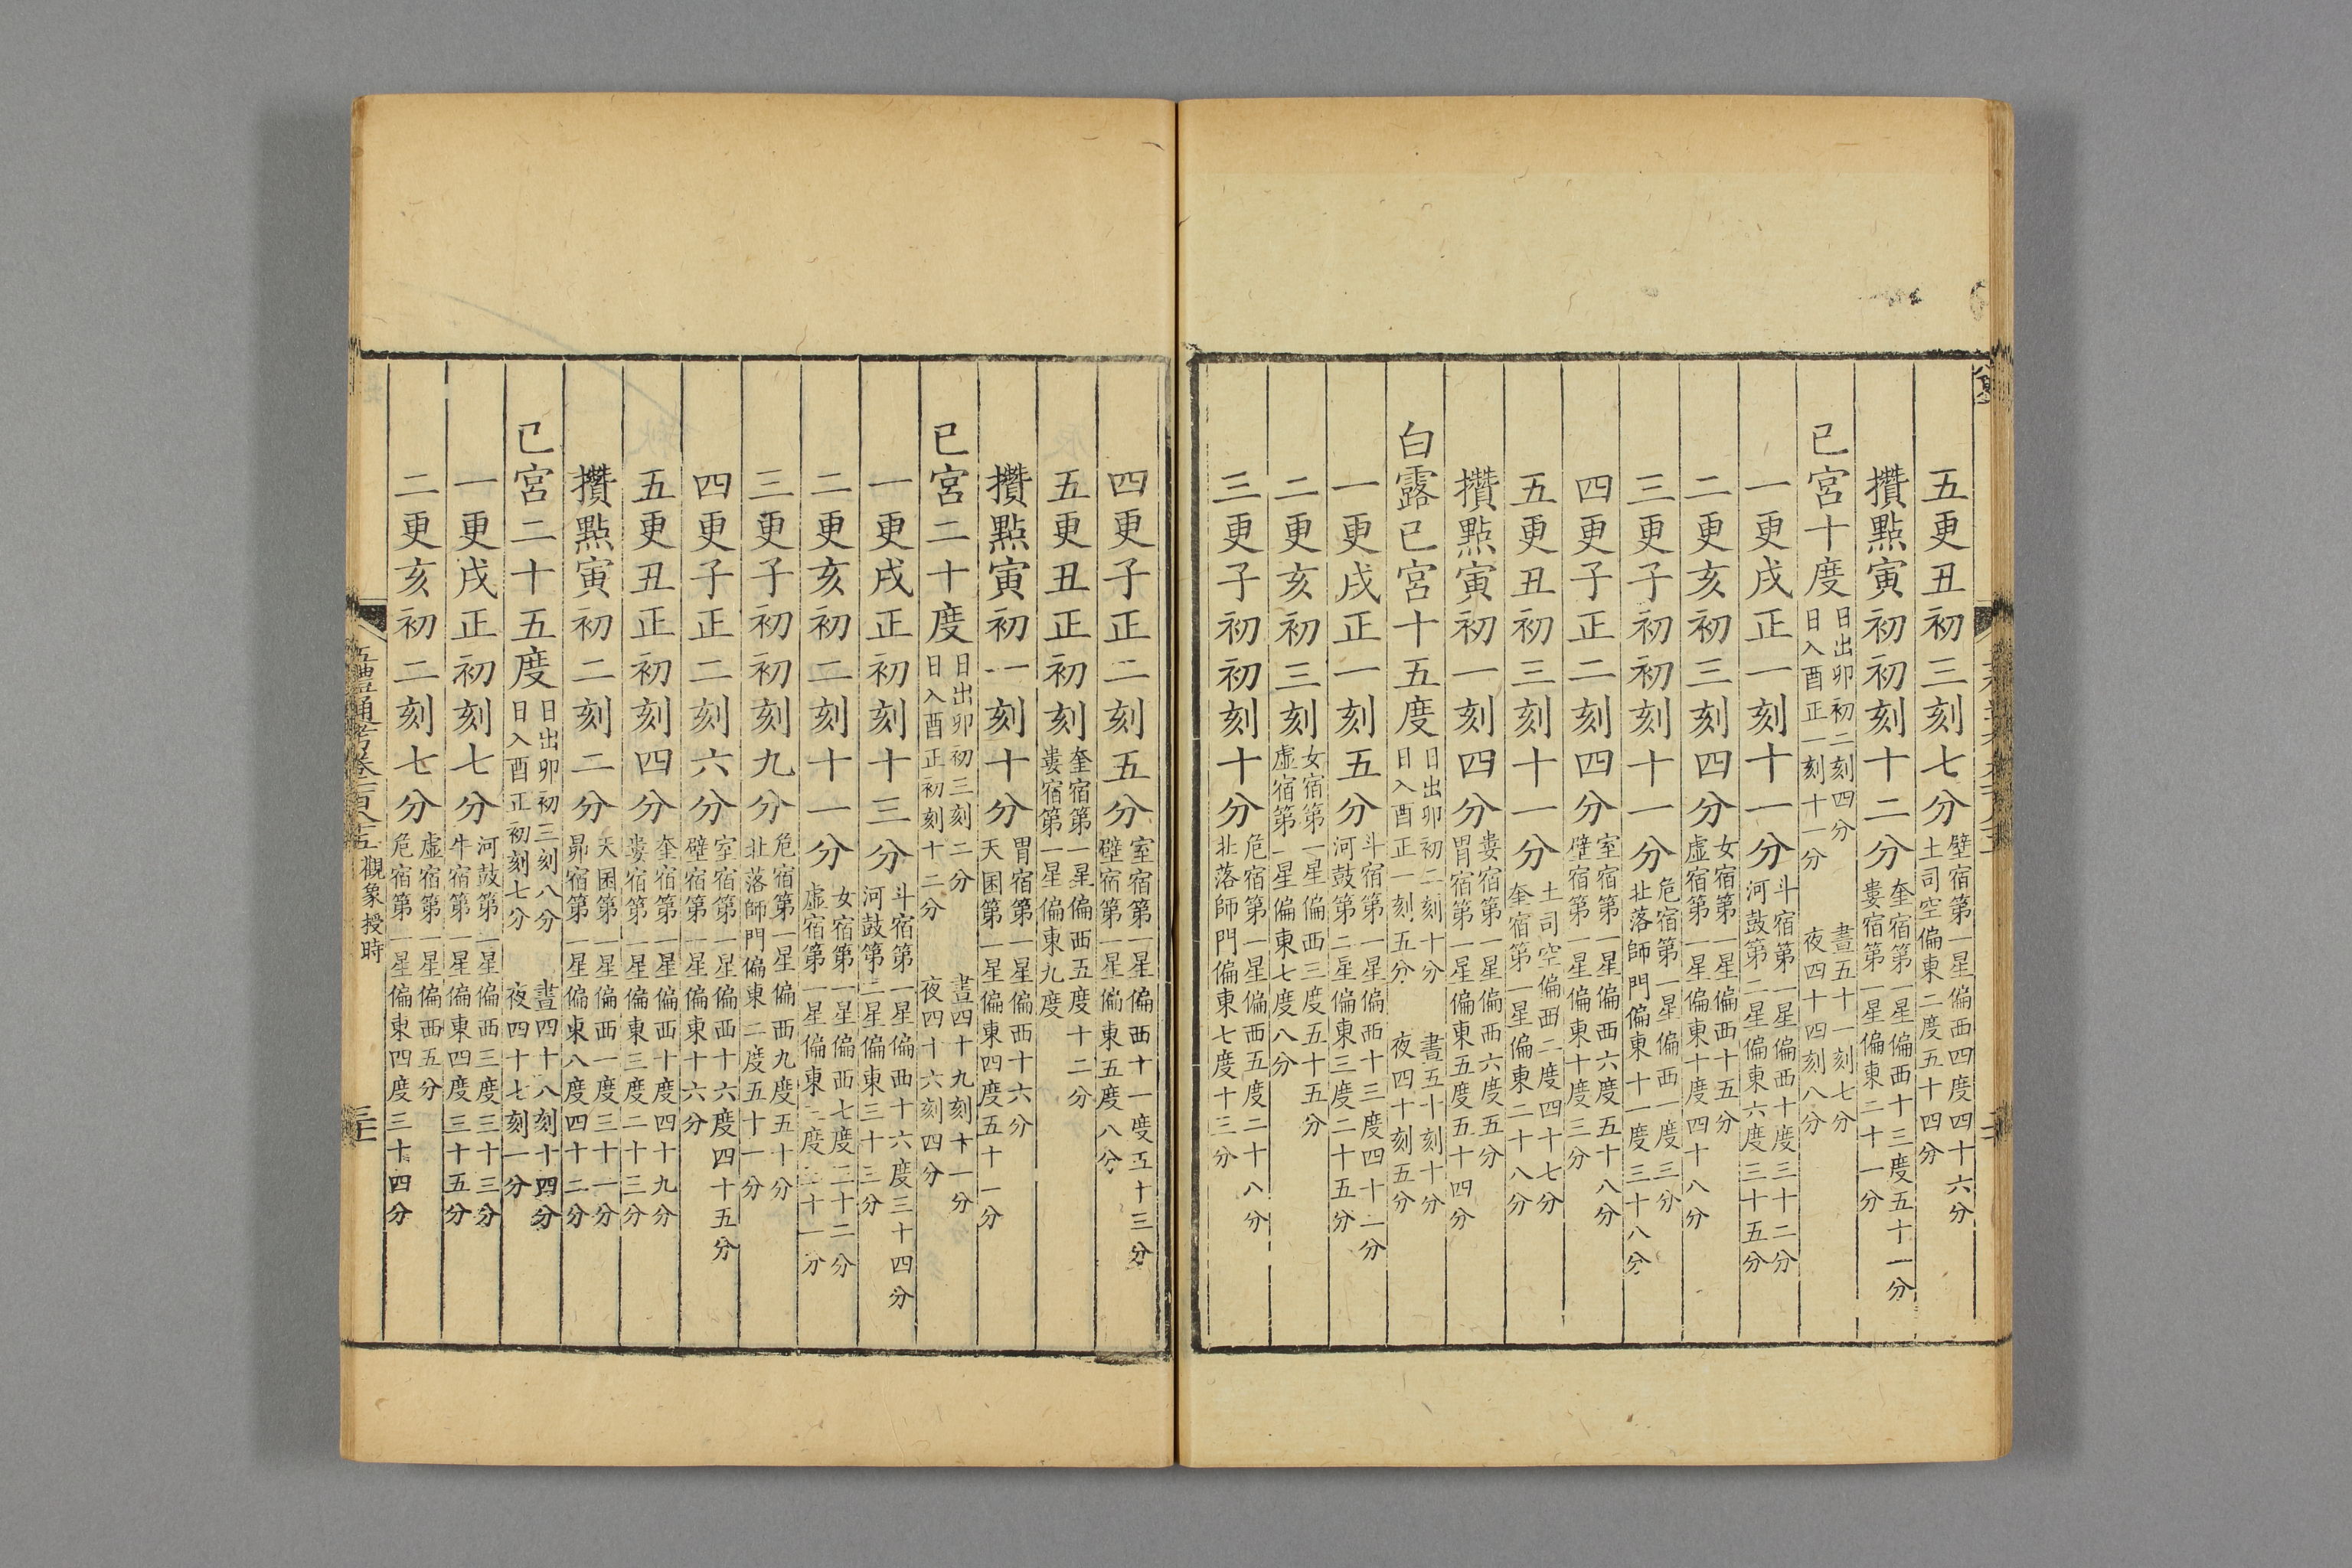 五更丑初三刻七分壁宿第一星偏西四度四十六分
土司空偏東二度五十四分
攢點寅初初刻十二分奎宿第一星偏西十三度五十一分
婁宿第一星偏東二十一分
巳宮十度日出卯初二刻四分 晝五十一刻七分
日入酉正一刻十一分 夜四十四刻八分
一更戌正一刻十一分斗宿第一星偏西十度三十二分
河鼓第二星偏東六度三十五分
二更亥初三刻四分女宿第一星偏西十五分
虛宿第一星偏東十度四十八分
三更子初初刻十一分危宿第一星偏西一度三分
北落師門偏東十一度三十八分
四更子正二刻四分室宿第一星偏西六度五十八分
壁宿第一星偏東十度三分
五更丑初三刻十一分土司空偏西二度四十七分
奎宿第一星偏東二十八分
攢點寅初一刻四分婁宿第一星偏西六度五分
胃宿第一星偏東五度五十四分
白露巳宮十五度日出卯初二刻十分 晝五十刻十分
日入酉正一刻五分 夜四十刻五分
一更戌正一刻五分斗宿第一星偏西十三度四十一分
河鼓第二星偏東三度二十五分
二更亥初三刻女宿第一星偏西三度五十五分
虛宿第一星偏東七度八分
三更子初初刻十分危宿第一星偏西五度二十八分
北落師門偏東七度十三分
四更子正二刻五分室宿第一星偏西十一度五十三分
壁宿第一星偏東五度八分
五更丑正初刻奎宿第一星偏西五度十二分
婁宿第一星偏東九度
攢點寅初一刻十分胃宿第一星偏西十六分
天囷第一星偏東四度五十一分
巳宮二十度日出卯初三刻二分 晝四十九刻十一分
日入酉正初刻十二分 夜四十六刻四分
一更戌正初刻十三分斗宿第一星偏西十六度三十四分
河鼓第二星偏東三十三分
二更亥初二刻十一分女宿第一星偏西七度二十二分
虛宿第一星偏東三度三十一分
三更子初初刻九分危宿第一星偏西九度五十分
北落師門偏東二度五十一分
四更子正二刻六分室宿第一星偏西十六度四十五分
壁宿第一星偏東十六分
五更丑正初刻四分奎宿第一星偏西十度四十九分
婁宿第一星偏東三度二十三分
攢點寅初二刻二分天囷第一星偏西一度三十一分
昴宿第一星偏東八度四十二分
巳宮二十五度日出卯初三刻八分 晝四十八刻十四分
日入酉正初刻七分 夜四十七刻一分
一更戌正初刻七分河鼓第二星偏西三度三十三分
牛宿第一星偏東四度三十五分
二更亥初二刻七分虛宿第一星偏西五分
危宿第一星偏東四度三十四分
五禮通考卷一百八十五 觀象授時